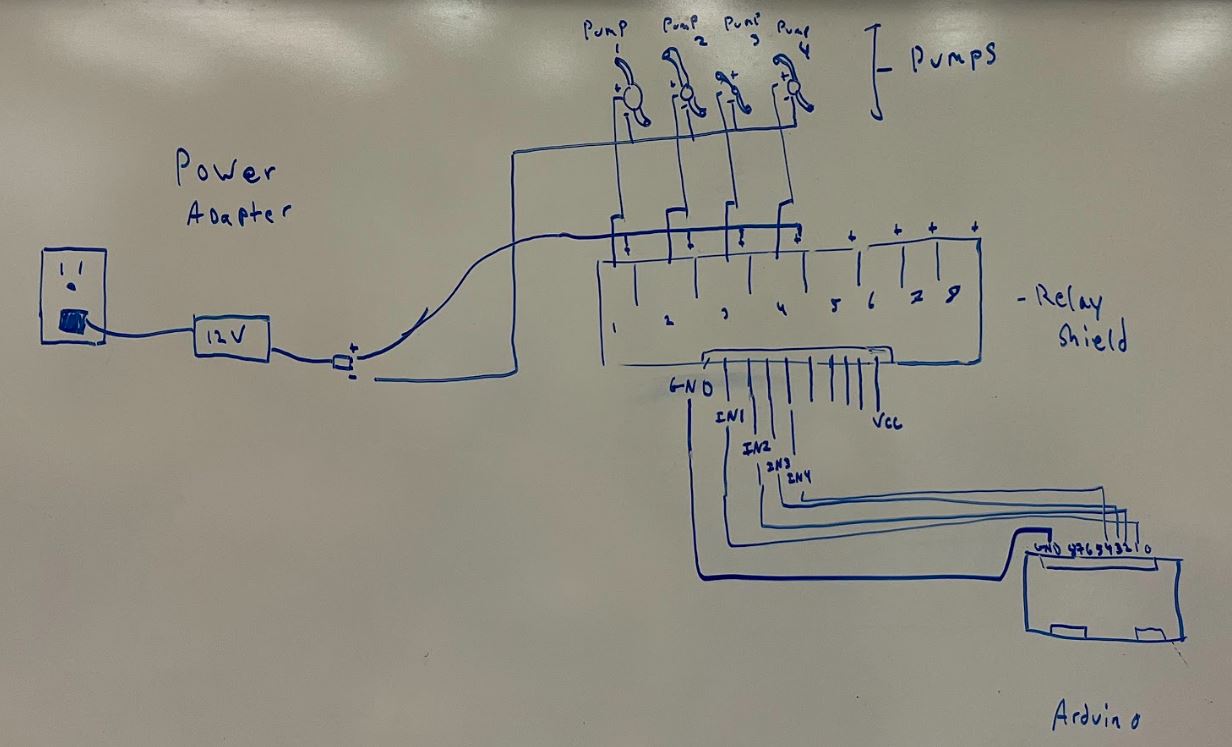 Pump
1
Pump
2
Pump
3
Pump
4
Pumps
Power
Adapter
+ - + - + - + -
12V
+
-
+ + + + + + + +
1 2 3 4 5 6 7 8
- Relay
Shield
GND
IN1
IN2
IN3
IN4
VCC
GND 876543210
Arduino